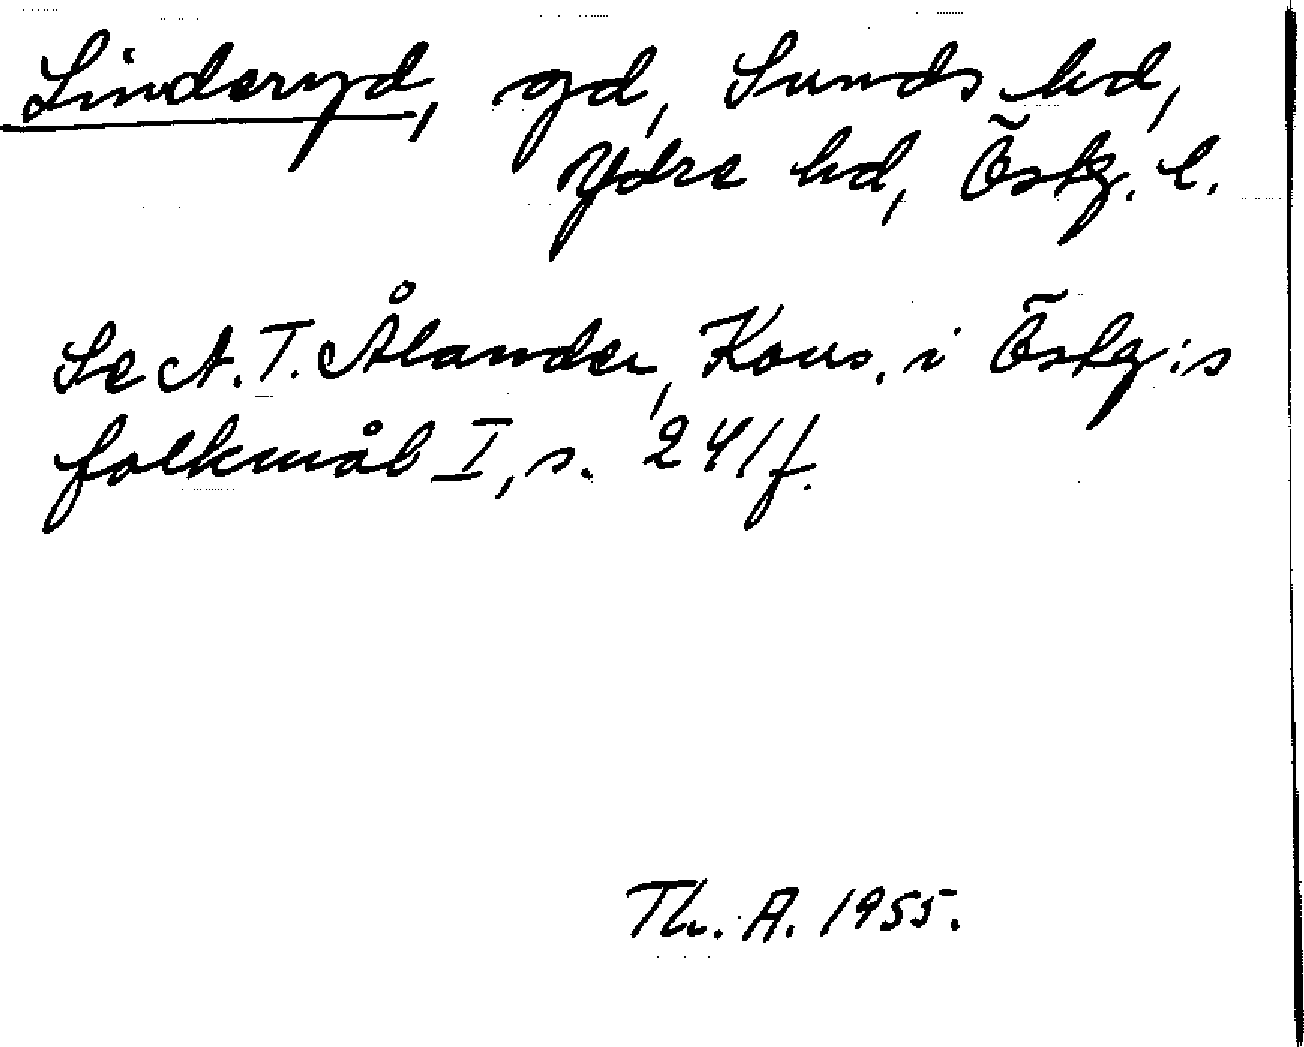 Linderyd, gd, Sunds hd,
Ydre hd, Östg. l.
Se A. T. Ålander, Kons. i Östg:s
folkmål I, s. 241 f.
Th. A. 1955.